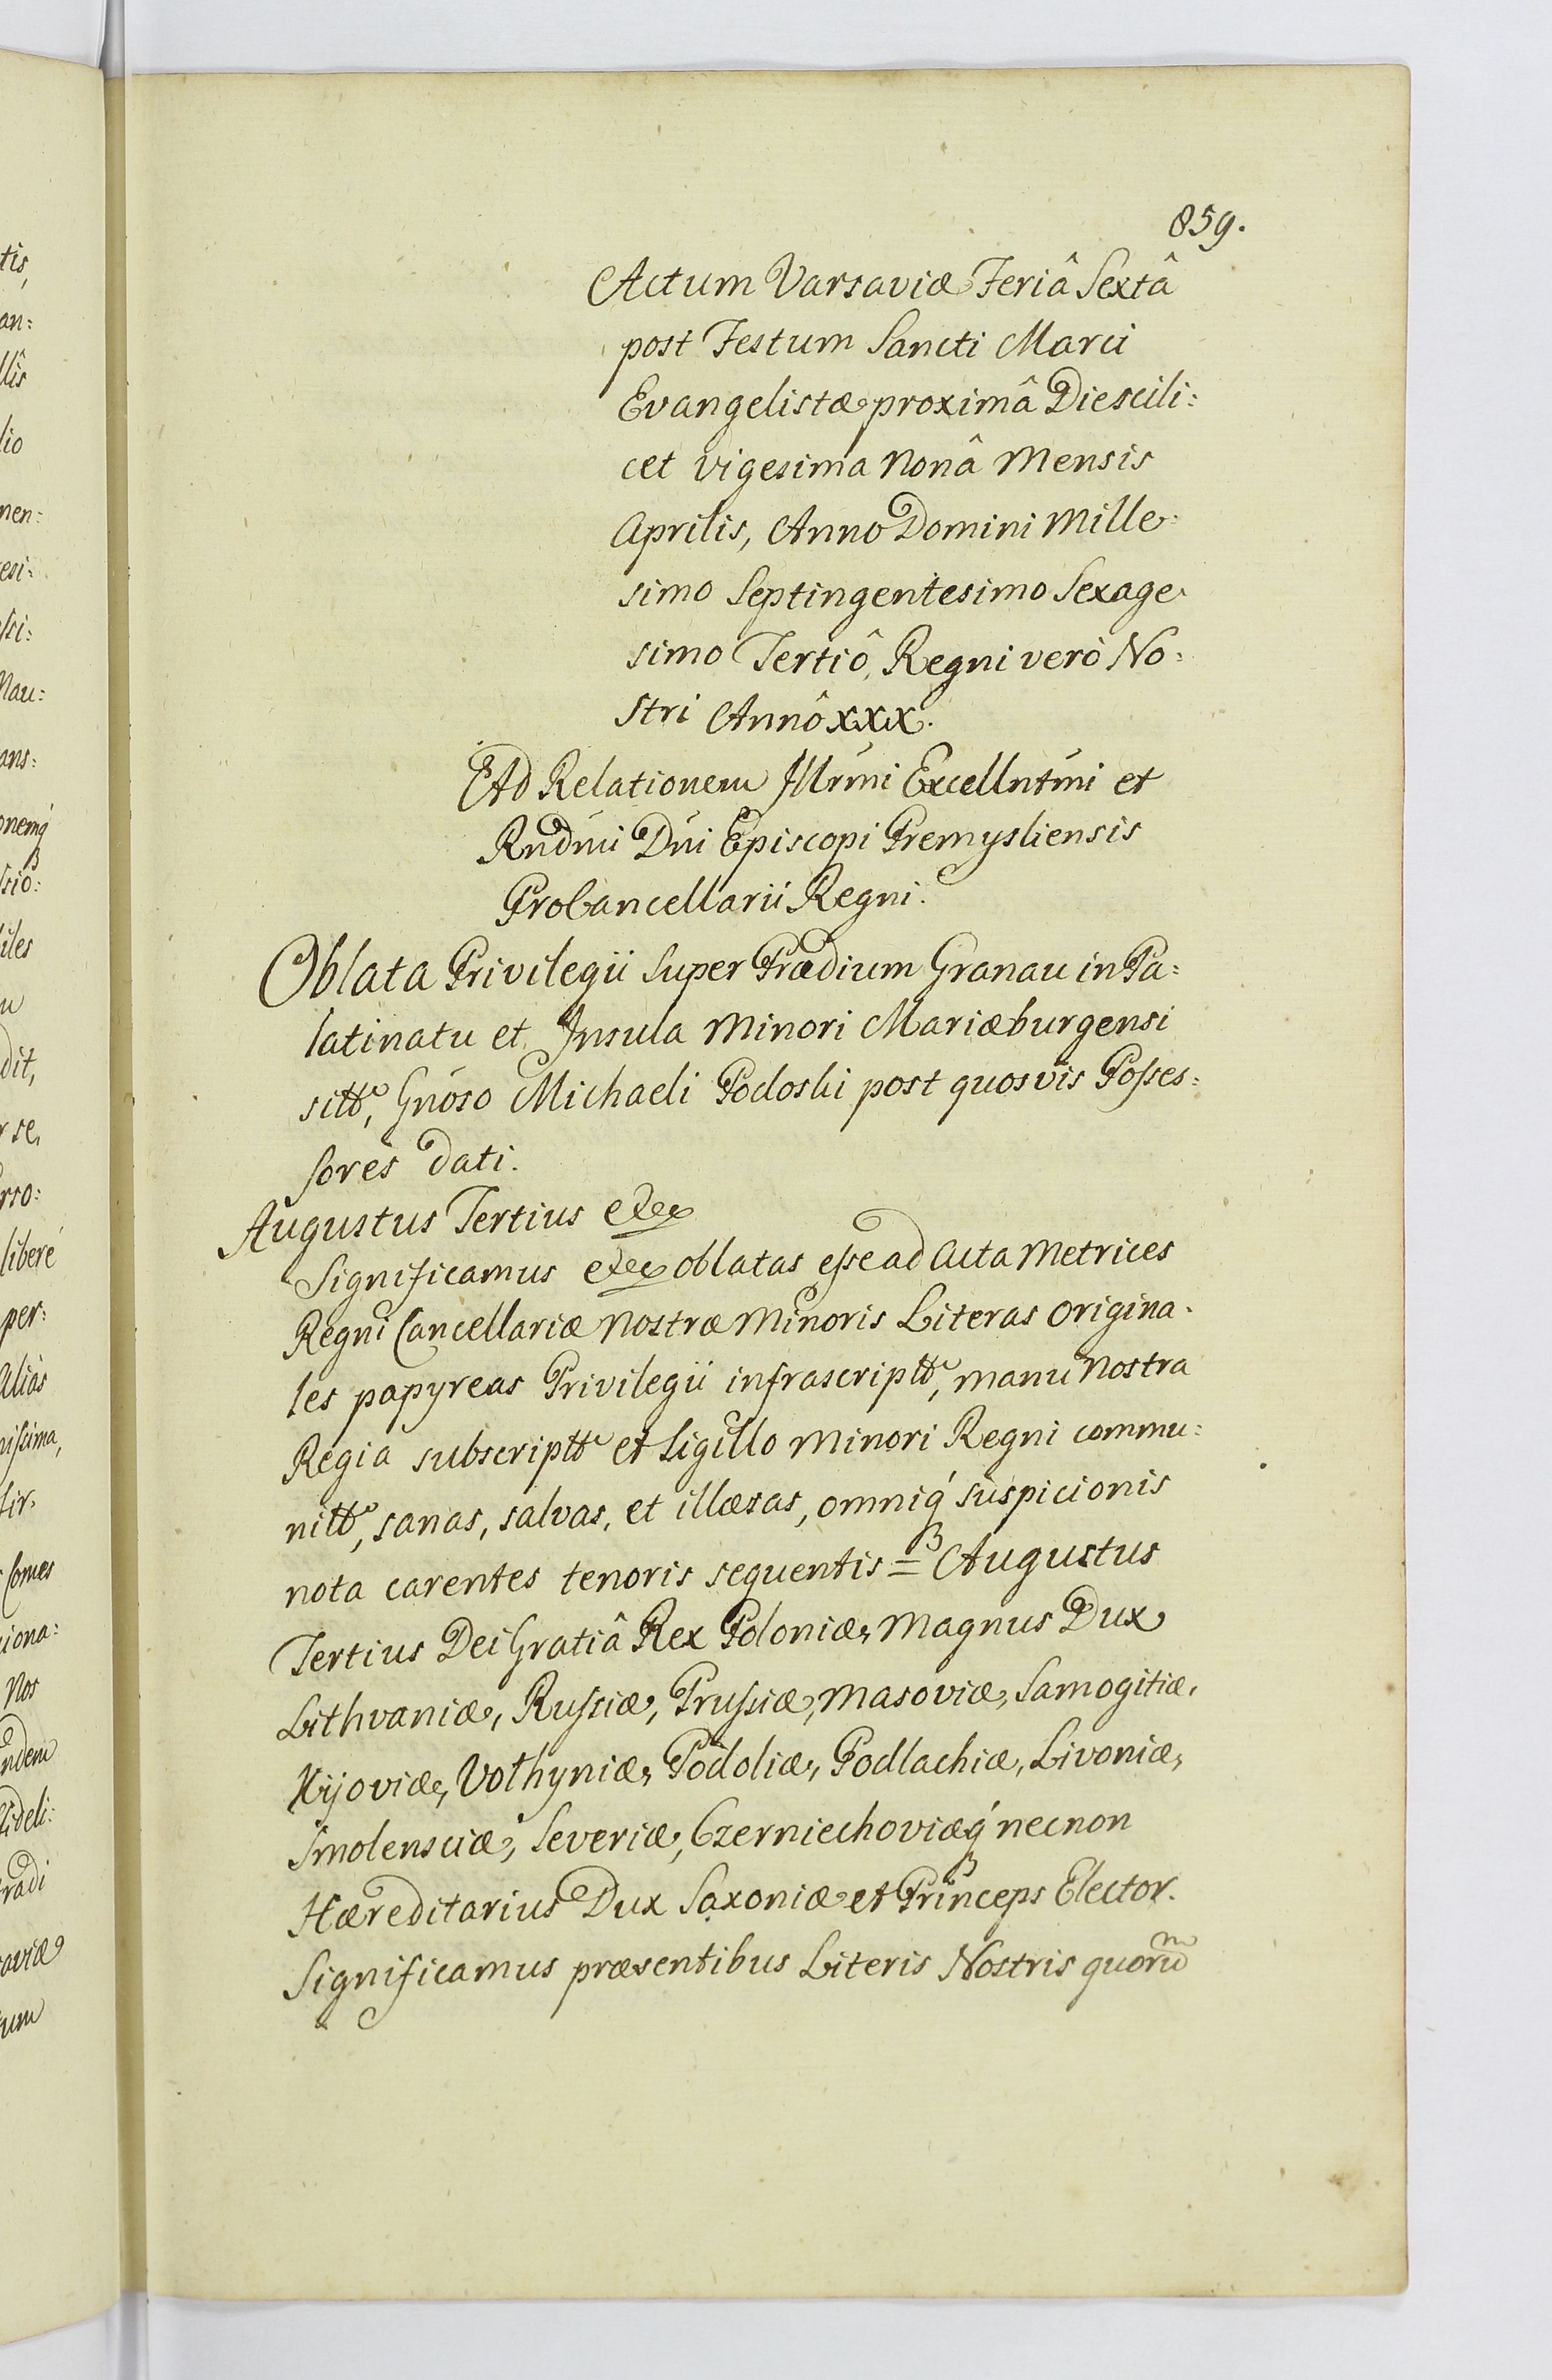 859.
Actum Varsaviæ Feriâ Sextâ
post Festum Sancti Marci
Evangelistæ proximâ Die scili:
cet vigesima Nonâ Mensis
Aprilis, Anno Domini Mille:
simo Septingentesimo Sexage
simo Tertiô, Regni verò No:
stri Annô XXX.
Ad Relationem Illrmi Excellntmi et
Rndmi Dni Episcopi Premysliensis
ProCancellarii Regni.
Oblata Privilegii super Prædium Granau in Pa:
latinatu et Insula Minori Mariæburgensi
sitt, Gnoso Michaeli Podoski post quosvis Posses:
sores dati.
Augustus Tertius etc
Significamus etc oblatas esse ad Acta Metrices
Regni Cancellariæ Nostræ Minoris Literas origina:
les papyreas Privilegii infrascriptt, manu Nostra
Regia subscriptt et Sigillo Minori Regni commu:
nitt, sanas, salvas, et illæsas, omniq́ suspicionis
nota carentes tenoris sequentis = Augustus
Tertius Dei Gratiâ Rex Poloniæ, Magnus Dux
Lithvaniæ, Russiæ, Prussiæ, Masoviæ, Samogitiæ,
Kijoviæ, Volhyniæ, Podoliæ, Podlachiæ, Livoniæ,
Smolensciæ, Severiæ, Czerniechoviæq́ necnon
Hæreditarius Dux Saxoniæ et Princeps Elector.
Significamus præsentibus Literis Nostris quorũ
tis,
an:
llis
lio
men:
esi:
sci:
Nau:
ans:
onemq́
ssio:
iles
dit,
r se,
rso:
liberé
per:
Aliàs
issima,
Comes
iona:
Nos
ndem
fideli:
radi
aviæ
tum